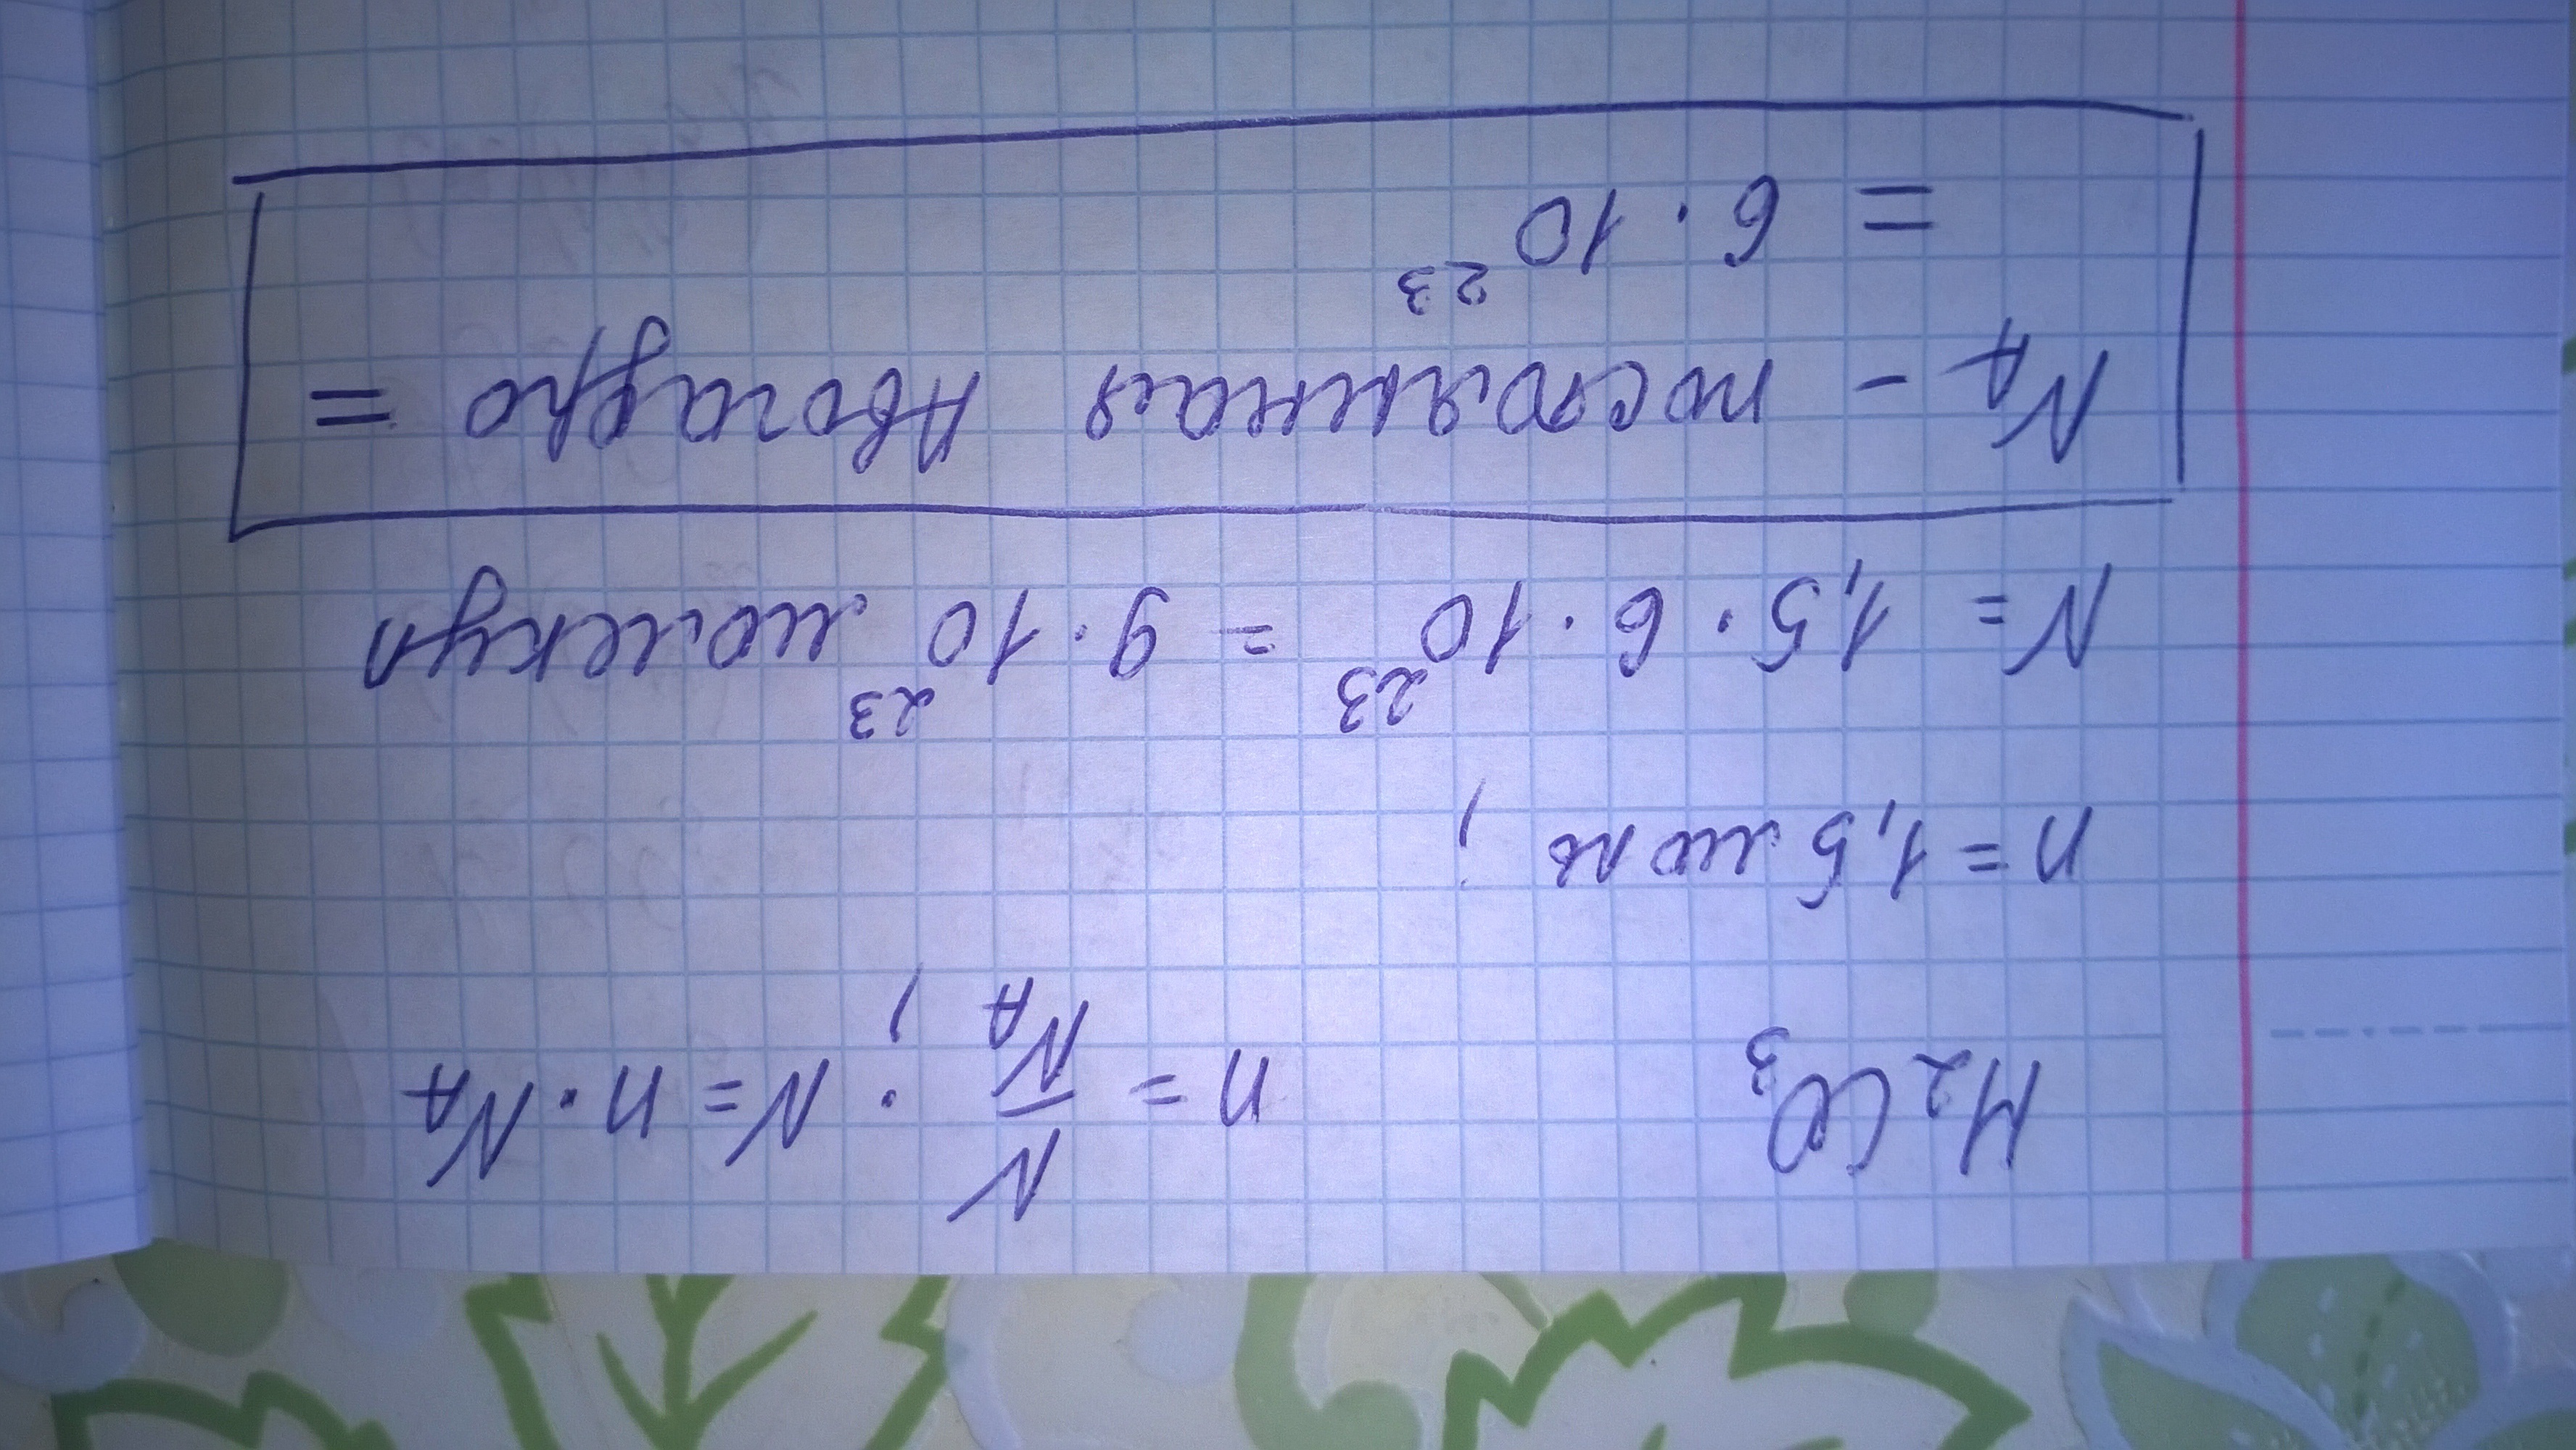 H₂CO₃ n = N/N_A ; N = n · N_A
n = 1,5 моль ;
N = 1,5 · 6 · 10²³ = 9 · 10²³ молекул
N_A - постоянная Авогадро =
= 6 · 10²³